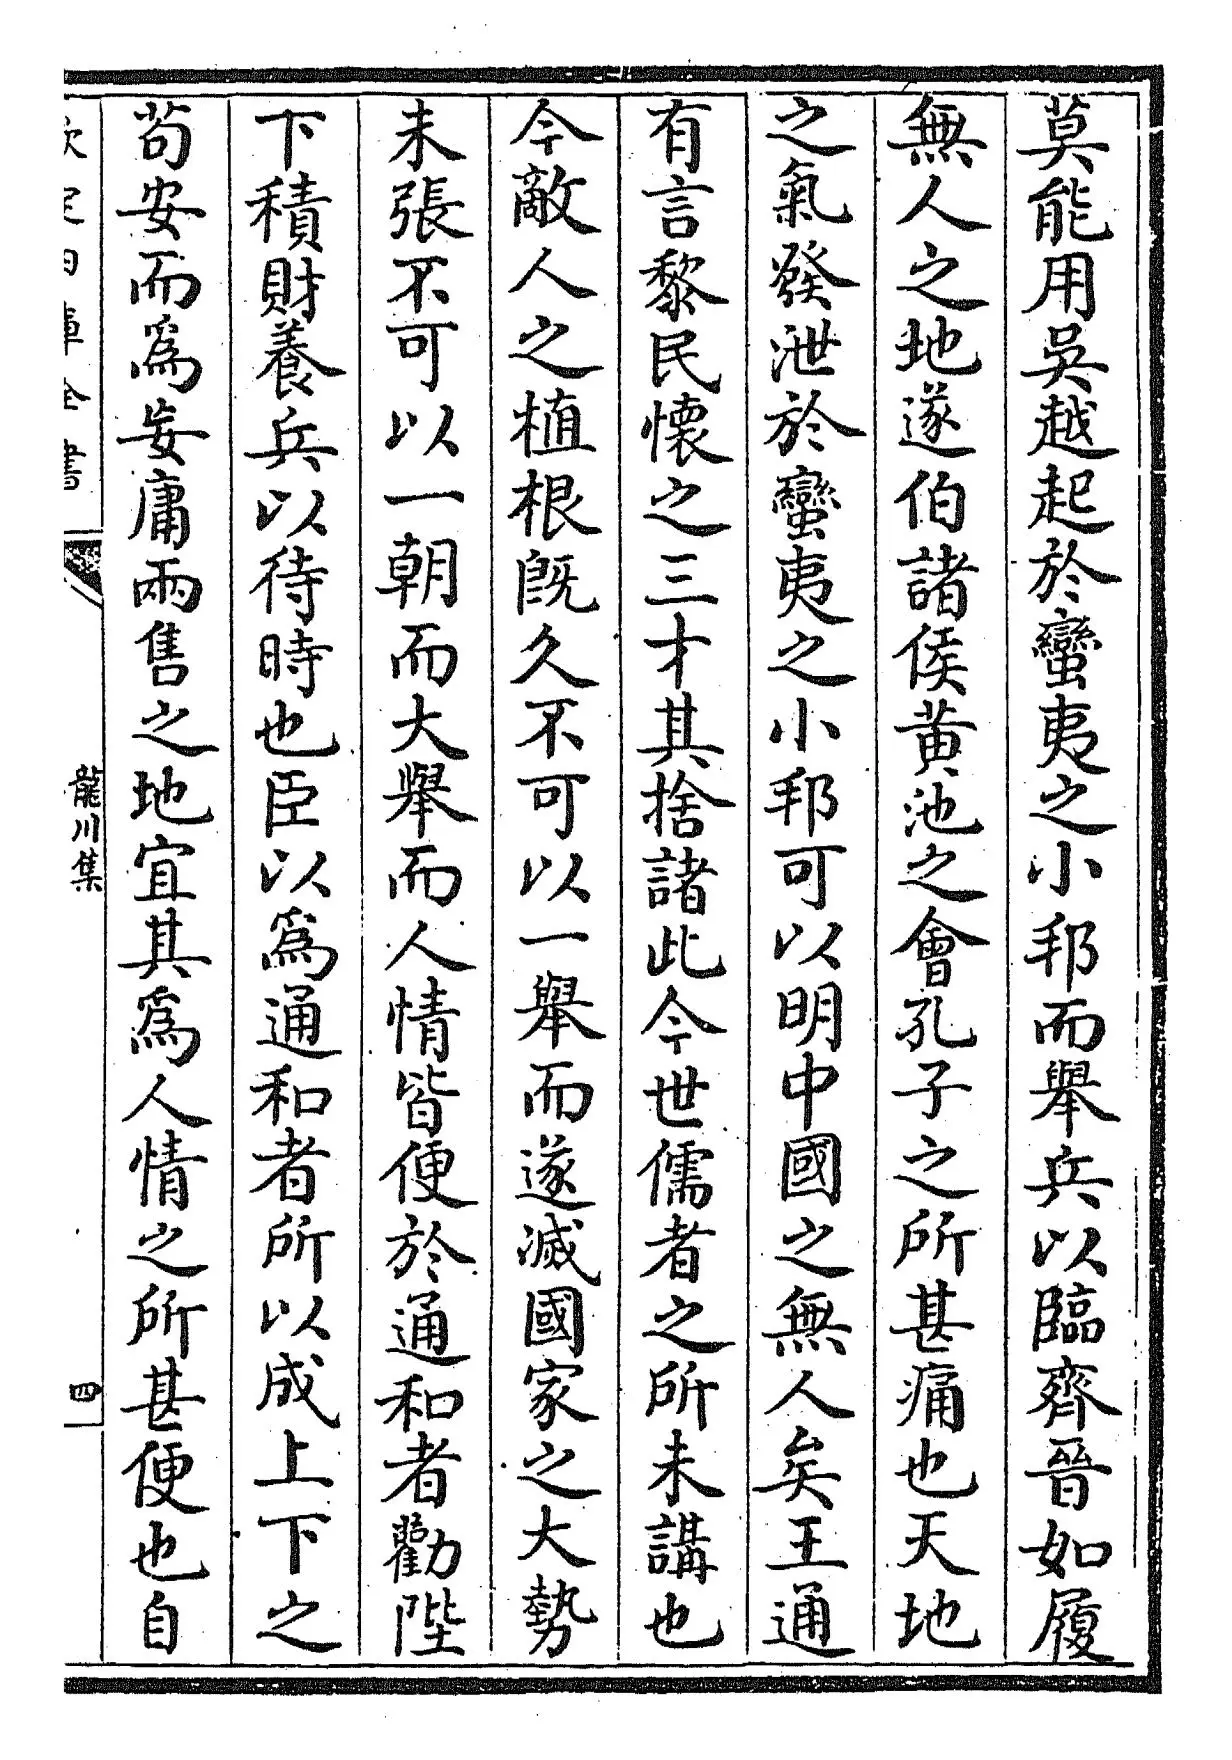 莫能用吳越起於蠻夷之小邦而舉兵以臨齊晉如履
無人之地遂伯諸侯黄池之會孔子之所甚痛也天地
之氣發泄於蠻夷之小邦可以明中國之無人矣王通
有言黎民懷之三才其捨諸此今世儒者之所未講也
今敵人之植根既久不可以一舉而遂滅國家之大勢
未張不可以一朝而大舉而人情皆便於通和者勸陛
下積財養兵以待時也臣以為通和者所以成上下之
苟安而為妄庸兩售之地宜其為人情之所甚便也自
欽定四庫全書
龍川集
四